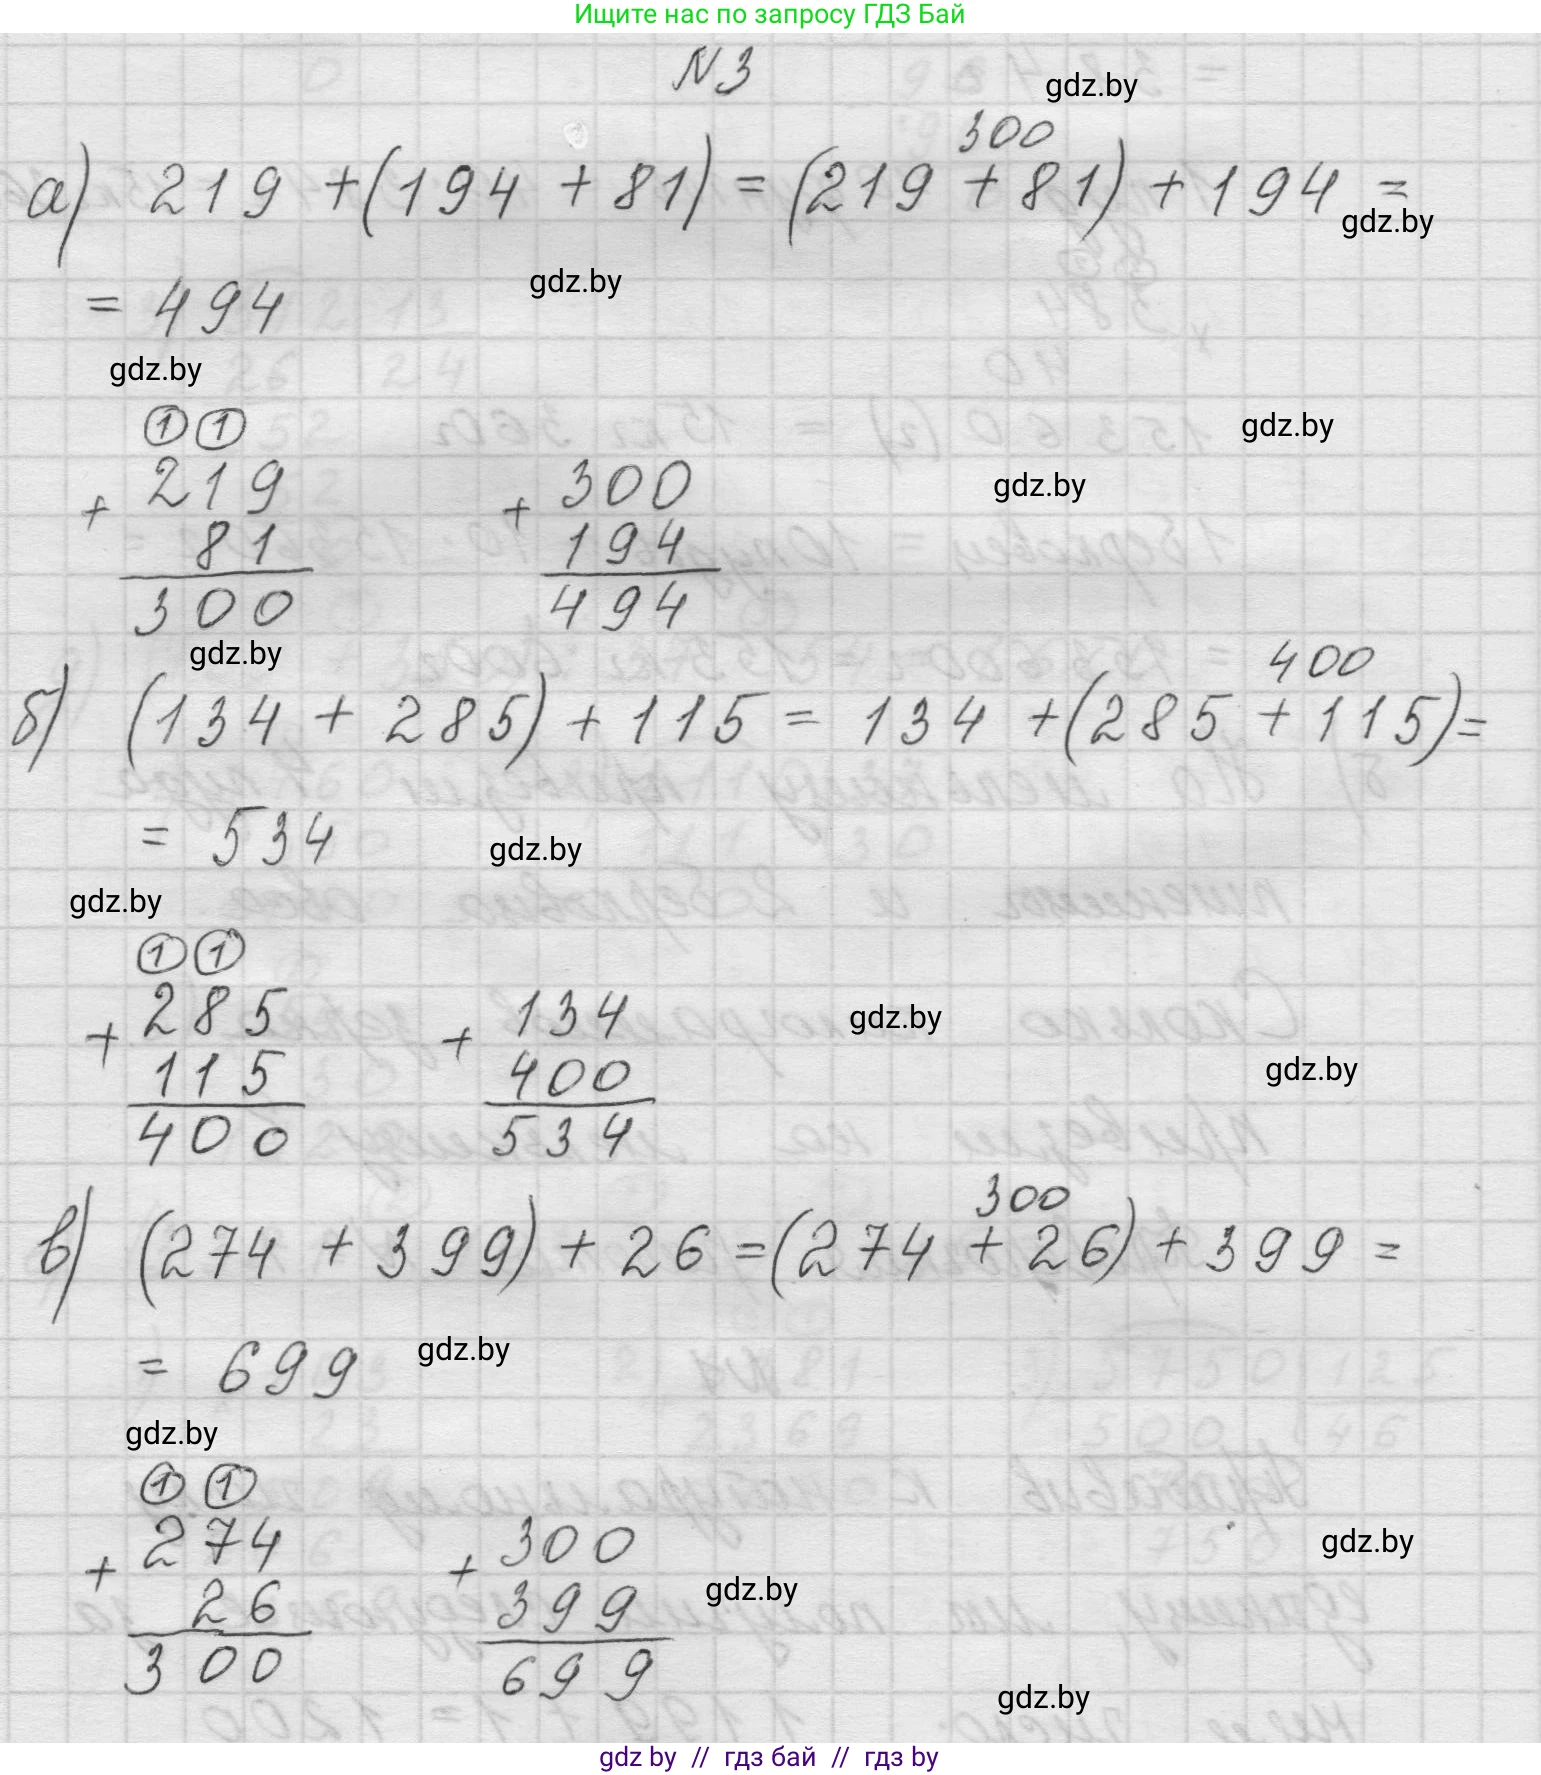 Ищите нас по запросу ГДЗ Бай
N3
gdz.by
300
а) 219 + (194 + 81) = (219 + 81) + 194 =
gdz.by
gdz.by
= 494
gdz.by
1 1
gdz.by
219
+
81
300
300
+
194
494
gdz.by
gdz.by
400
б) (134 + 285) + 115 = 134 + (285 + 115) =
= 534
gdz.by
gdz.by
1 1
285
+
115
400
134
+
400
534
gdz.by
gdz.by
300
в) (274 + 399) + 26 = (274 + 26) + 399 =
= 699
gdz.by
gdz.by
1 1
274
+
26
300
300
+
399
699
gdz.by
gdz.by
gdz.by
gdz by // гдз бай // гдз by